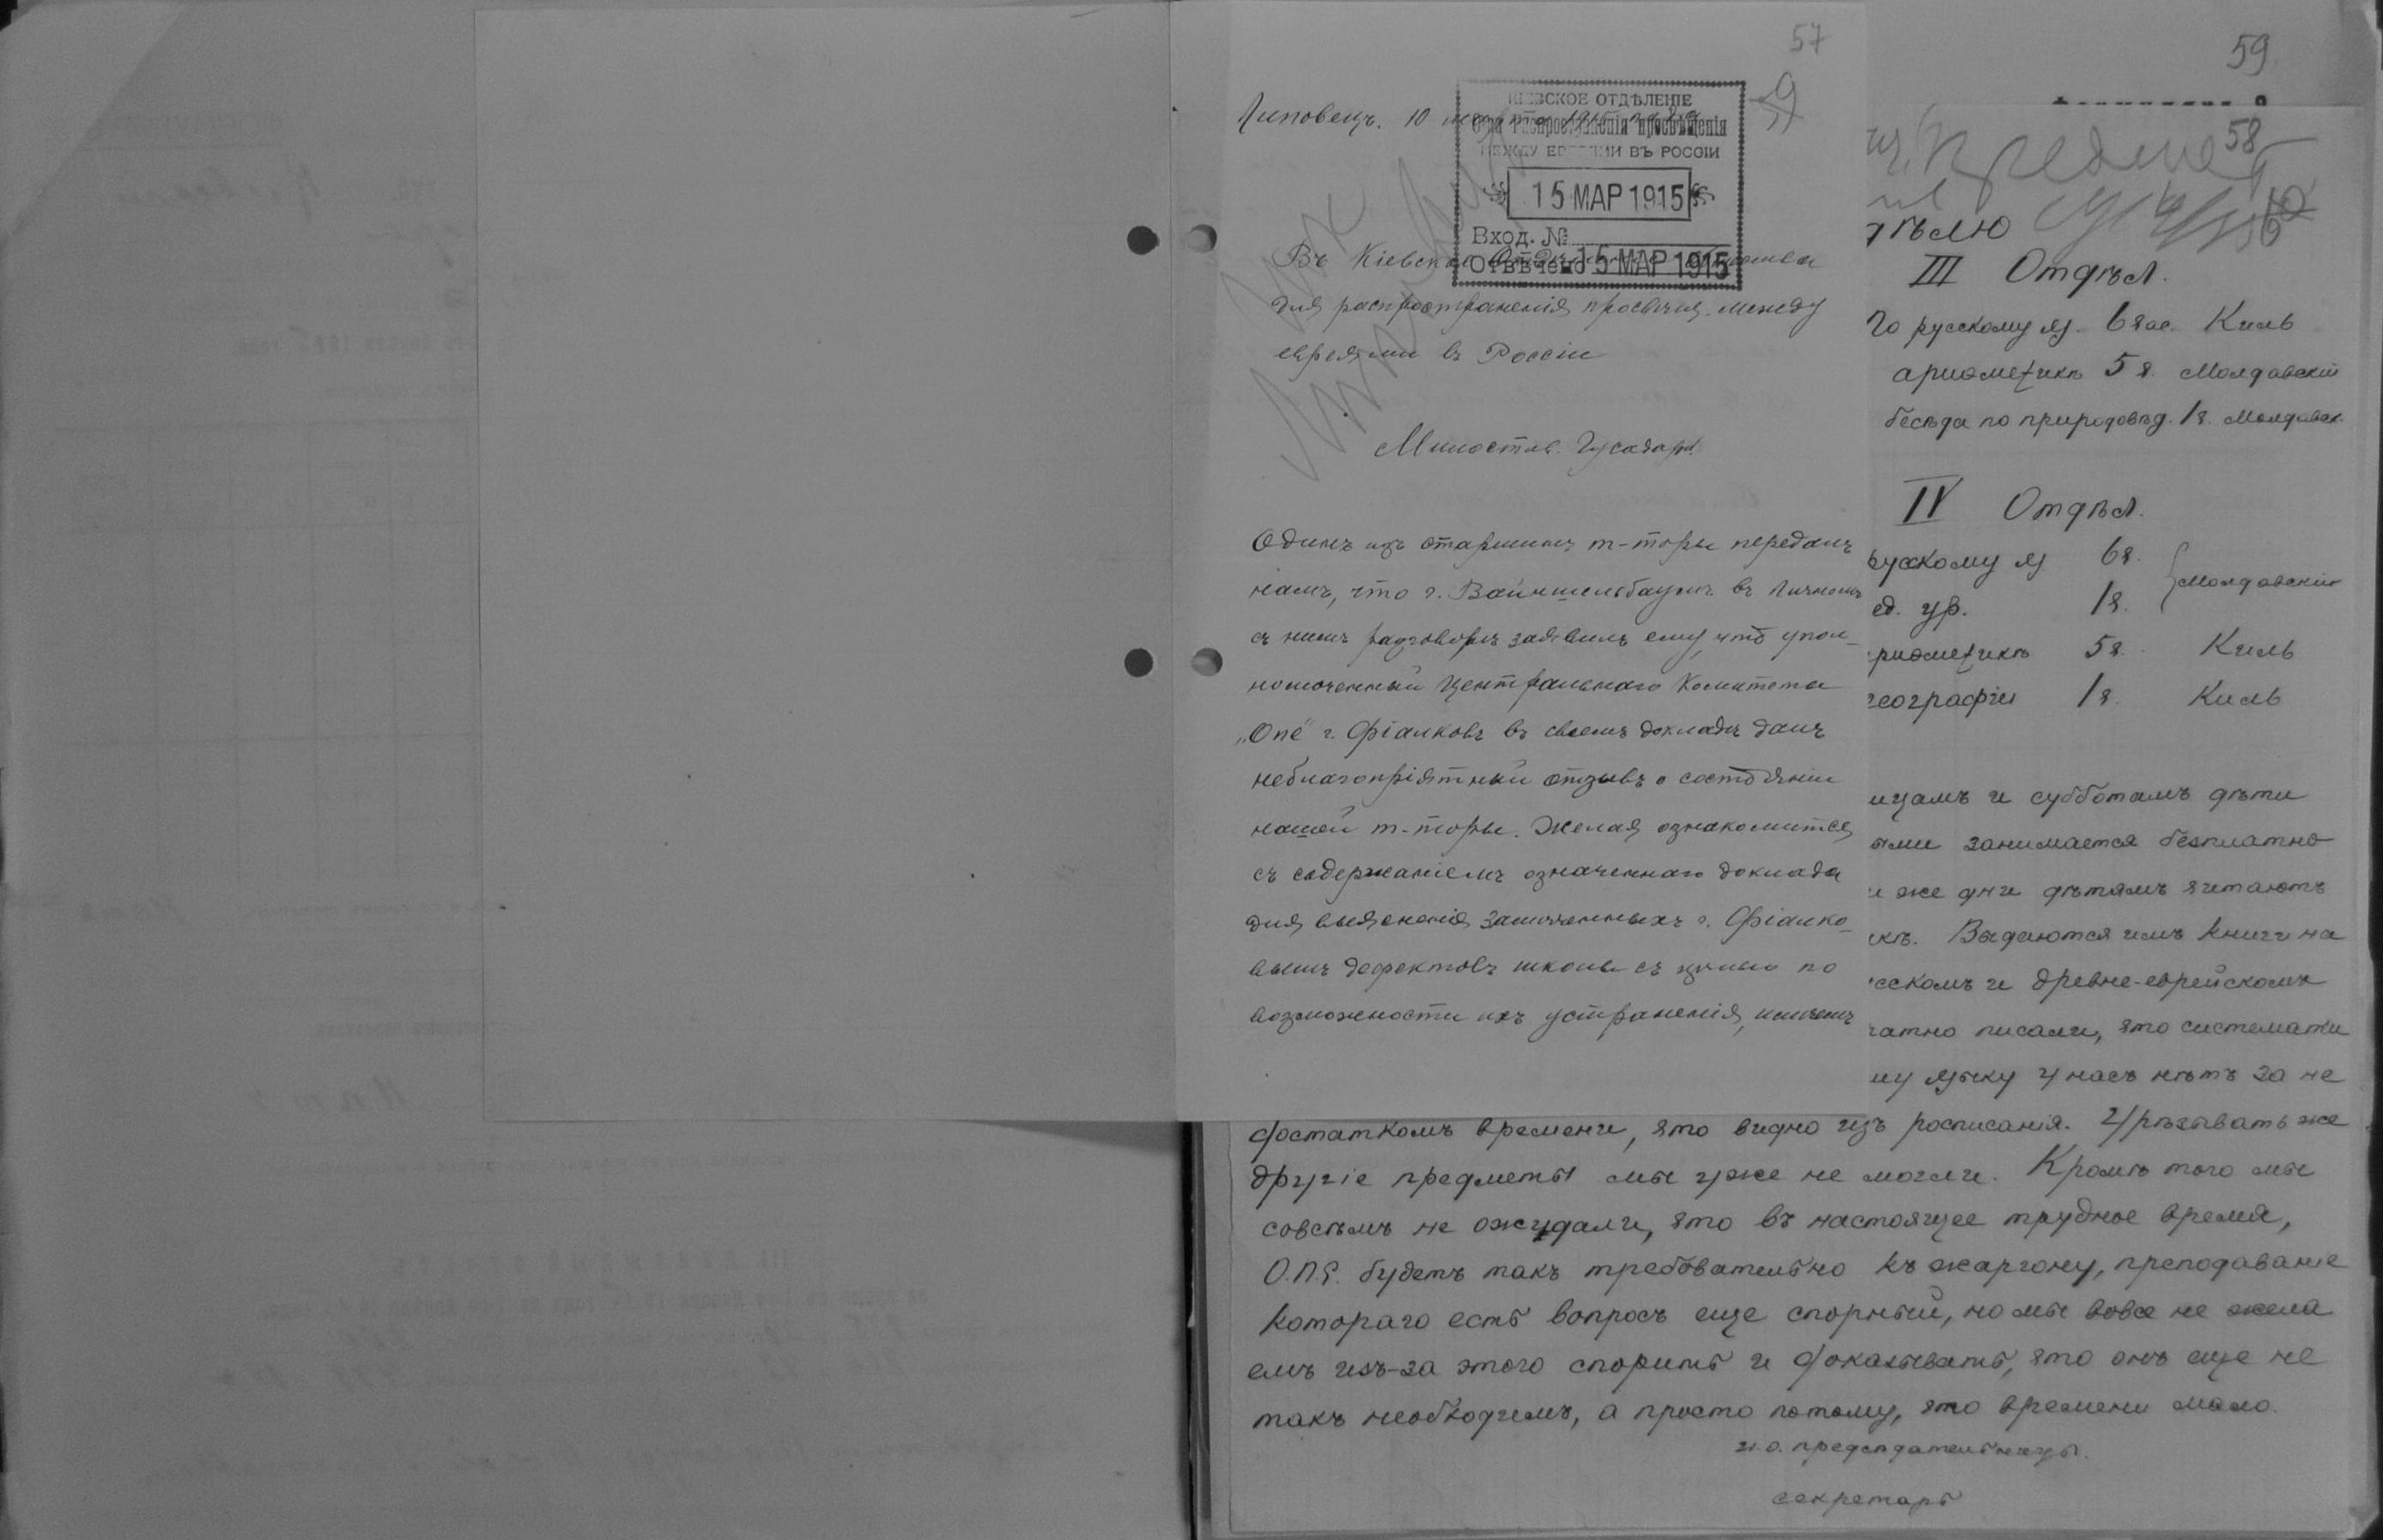 57
Липовецъ. 10 марта 1915 года
КІЕВСКОЕ ОТДѢЛЕНІЕ
О-ва распространенія просвѣщенія
МЕЖДУ ЕВРЕЯМИ ВЪ РОССІИ
15 МАР 1915
Вход. №
Отвѣчено 15 МАР 1915
Въ Кіевское Отдѣленіе Общества
для распространенія просвѣщ. между
евреями въ Россіи
Милостив. Государи!
Одинъ изъ старшинъ т-торы передалъ
намъ, что г. Вайншельбаумъ въ личномъ
съ нимъ разговорѣ заявилъ ему, что упол-
номоченный Центральнаго Комитета
„Опе" г. Фіалковъ въ своемъ докладѣ далъ
неблагопріятный отзывъ о состояніи
нашей т-торы. Желая ознакомится
съ содержаніемъ означеннаго доклада
для выясненія замѣченныхъ г. Фіалко-
вымъ дефектовъ школы съ цѣлью по
возможности ихъ устраненія, имѣемъ
59
58
дѣлю
III Отдѣл.
По русскому яз. 6 час. Киль
ариѳметикѣ 5 ч. Молдавскій
бесѣда по природовѣд. 1 ч. Молдавск.
IV Отдѣл.
русскому яз 6 ч.
Молдавскій
ед. ур. 1 ч.
риѳметикѣ 5 ч. Киль
географіи 1 ч. Киль
ицамъ и субботамъ дѣти
ыми занимается безплатно
и же дни дѣтямъ читаютъ
екѣ. Выдаются имъ книги на
сскомъ и древне-еврейскомъ
ратно писали, что системати
му языку у насъ нѣтъ за не
достаткомъ времени, что видно изъ росписанія. Урѣзывать же
другіе предметы мы уже не могли. Кромѣ того мы
совсѣмъ не ожидали, что въ настоящее трудное время,
О.П.Е. будетъ такъ требовательно къ жаргону, преподаваніе
котораго есть вопросъ еще спорный, но мы вовсе не жела
емъ изъ-за этого спорить и доказывать, что онъ еще не
такъ необходимъ, а просто потому, что времени мало.
и.о. предсѣдательницы.
секретарь